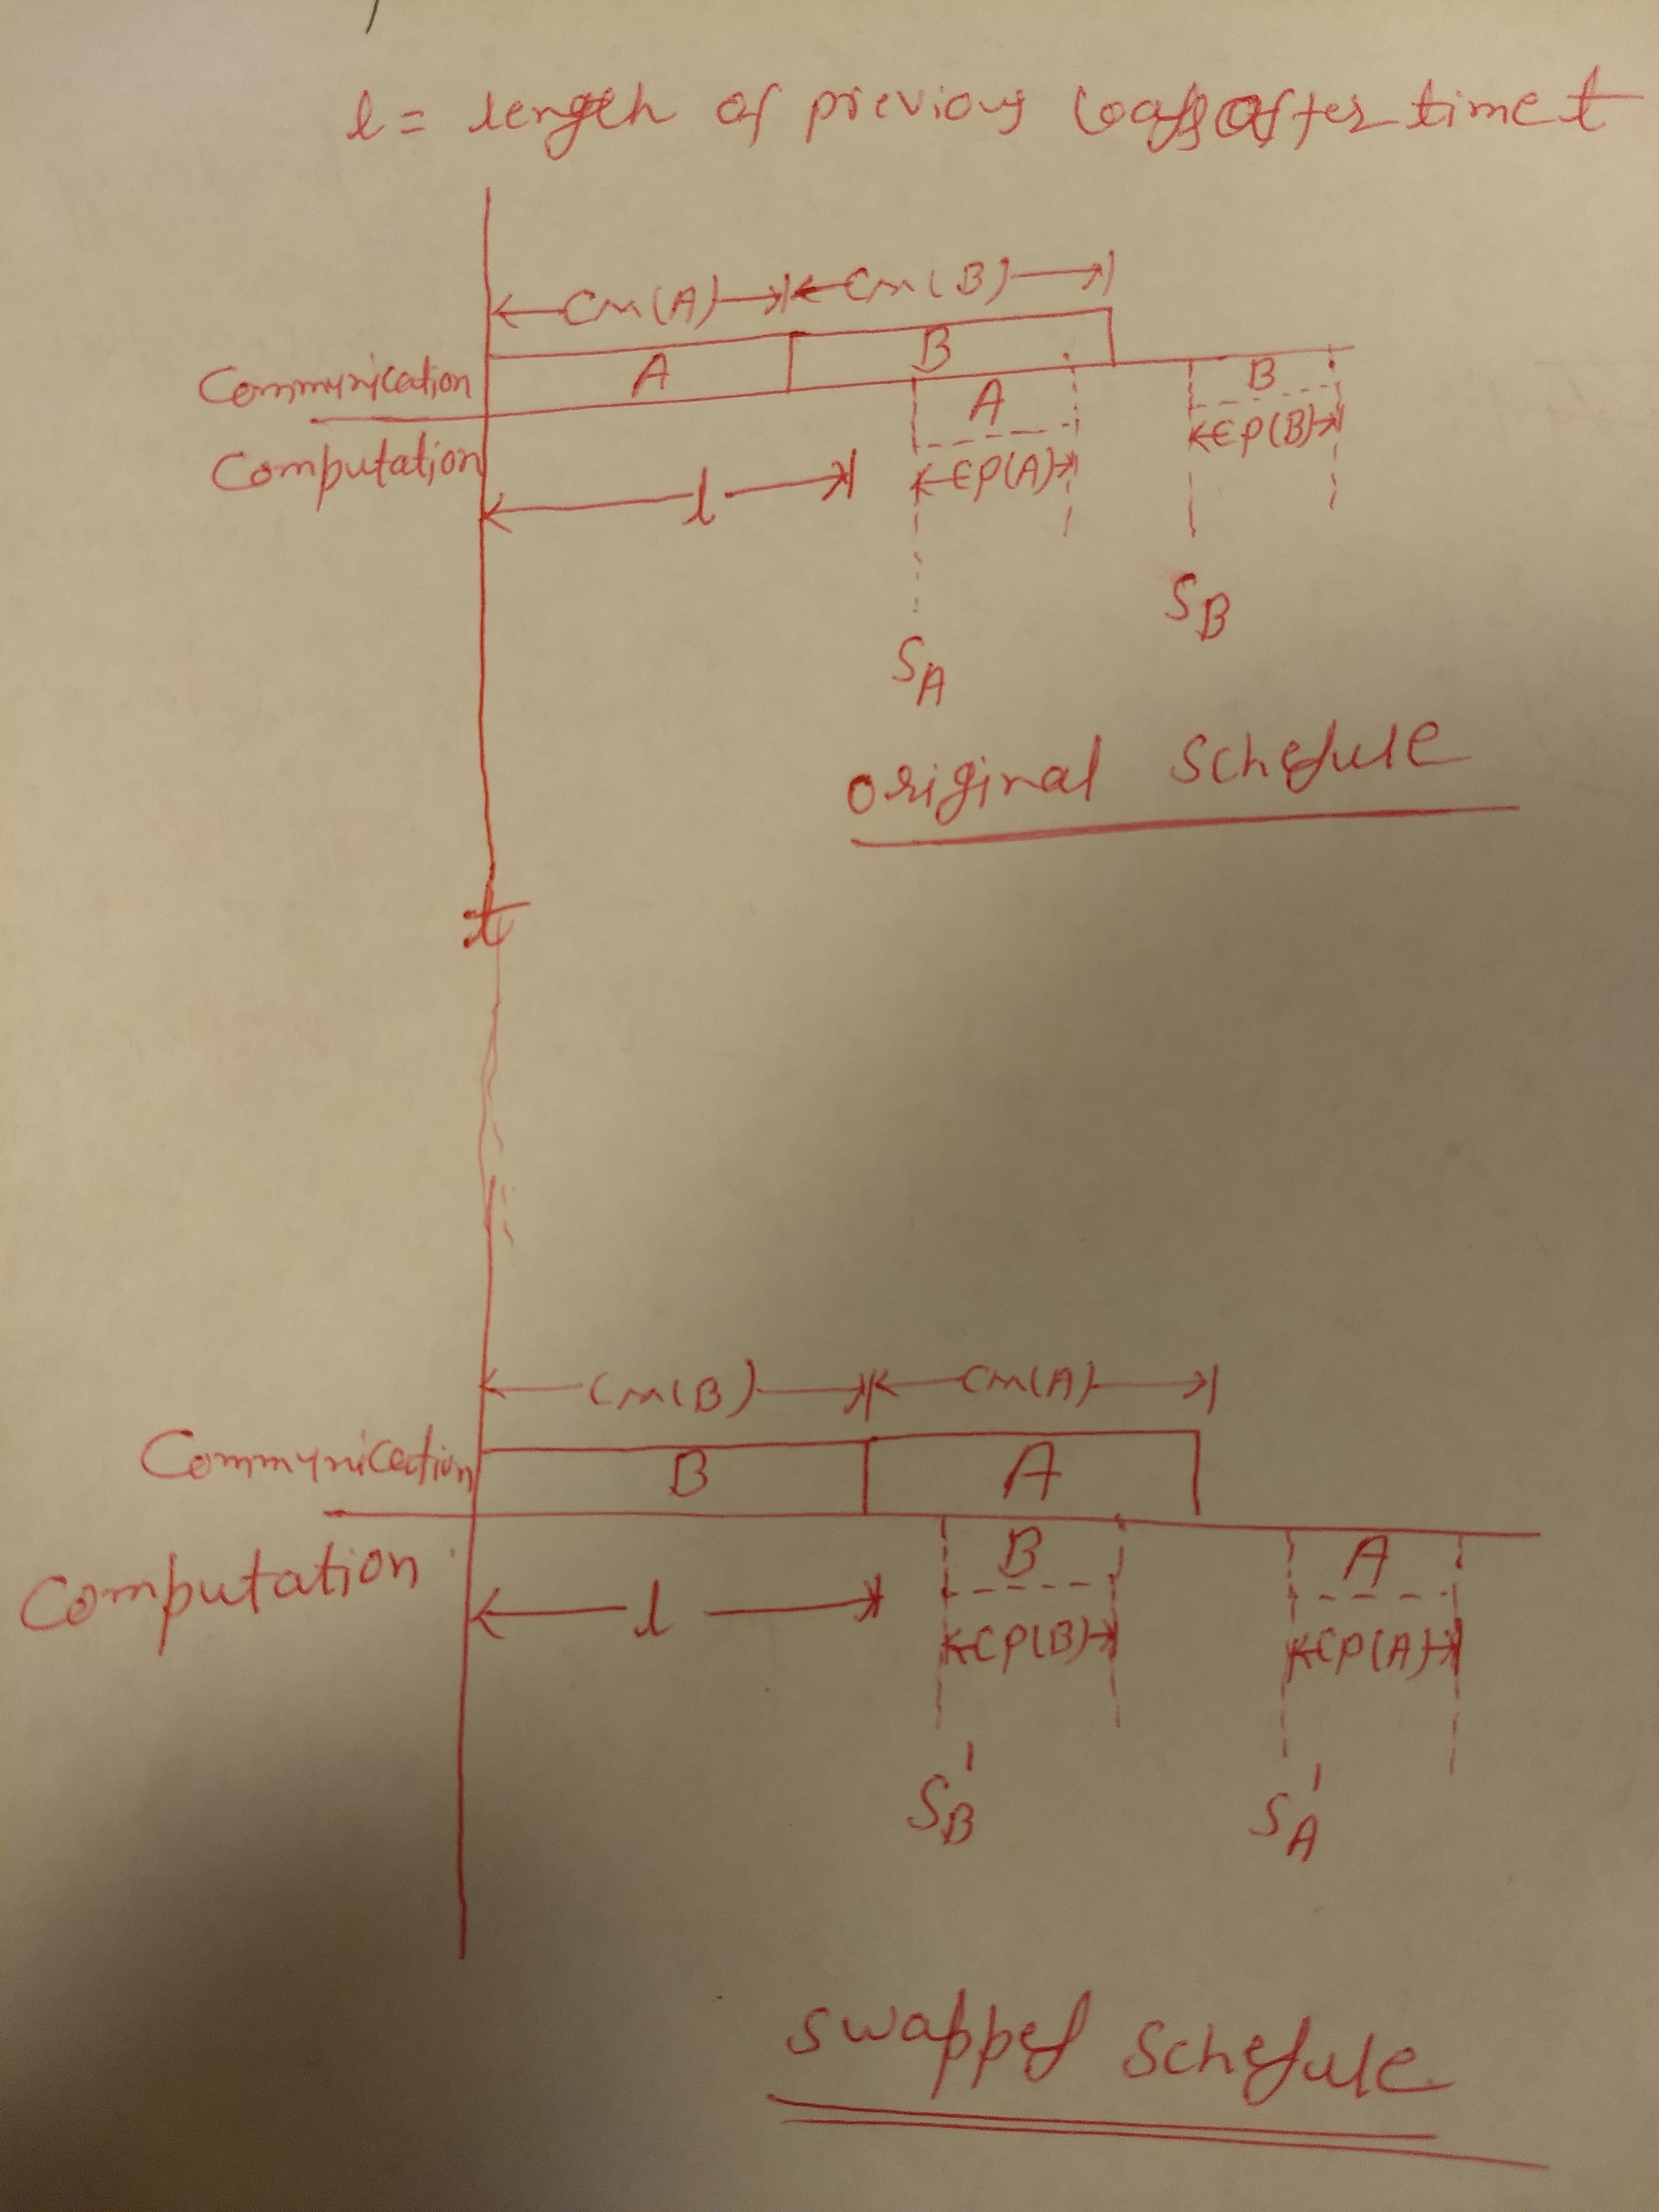 l = length of previous loads after time t
Cm(A) Cm(B)
A B
Communication
A B
CP(A) CP(B)
Computation
l
SB
SA
original Schedule
t
Cm(B) Cm(A)
Communication
B A
B A
Computation
l
CP(B) CP(A)
S'B S'A
Swapped Schedule